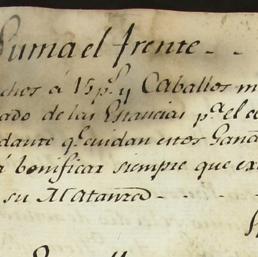 Suma el frente
chos á 15 p.s y Caballos m
ado de las Estancias p.a el c
dante q.e cuidan estos Gana
á bonificar siempre que ex
su Matanza